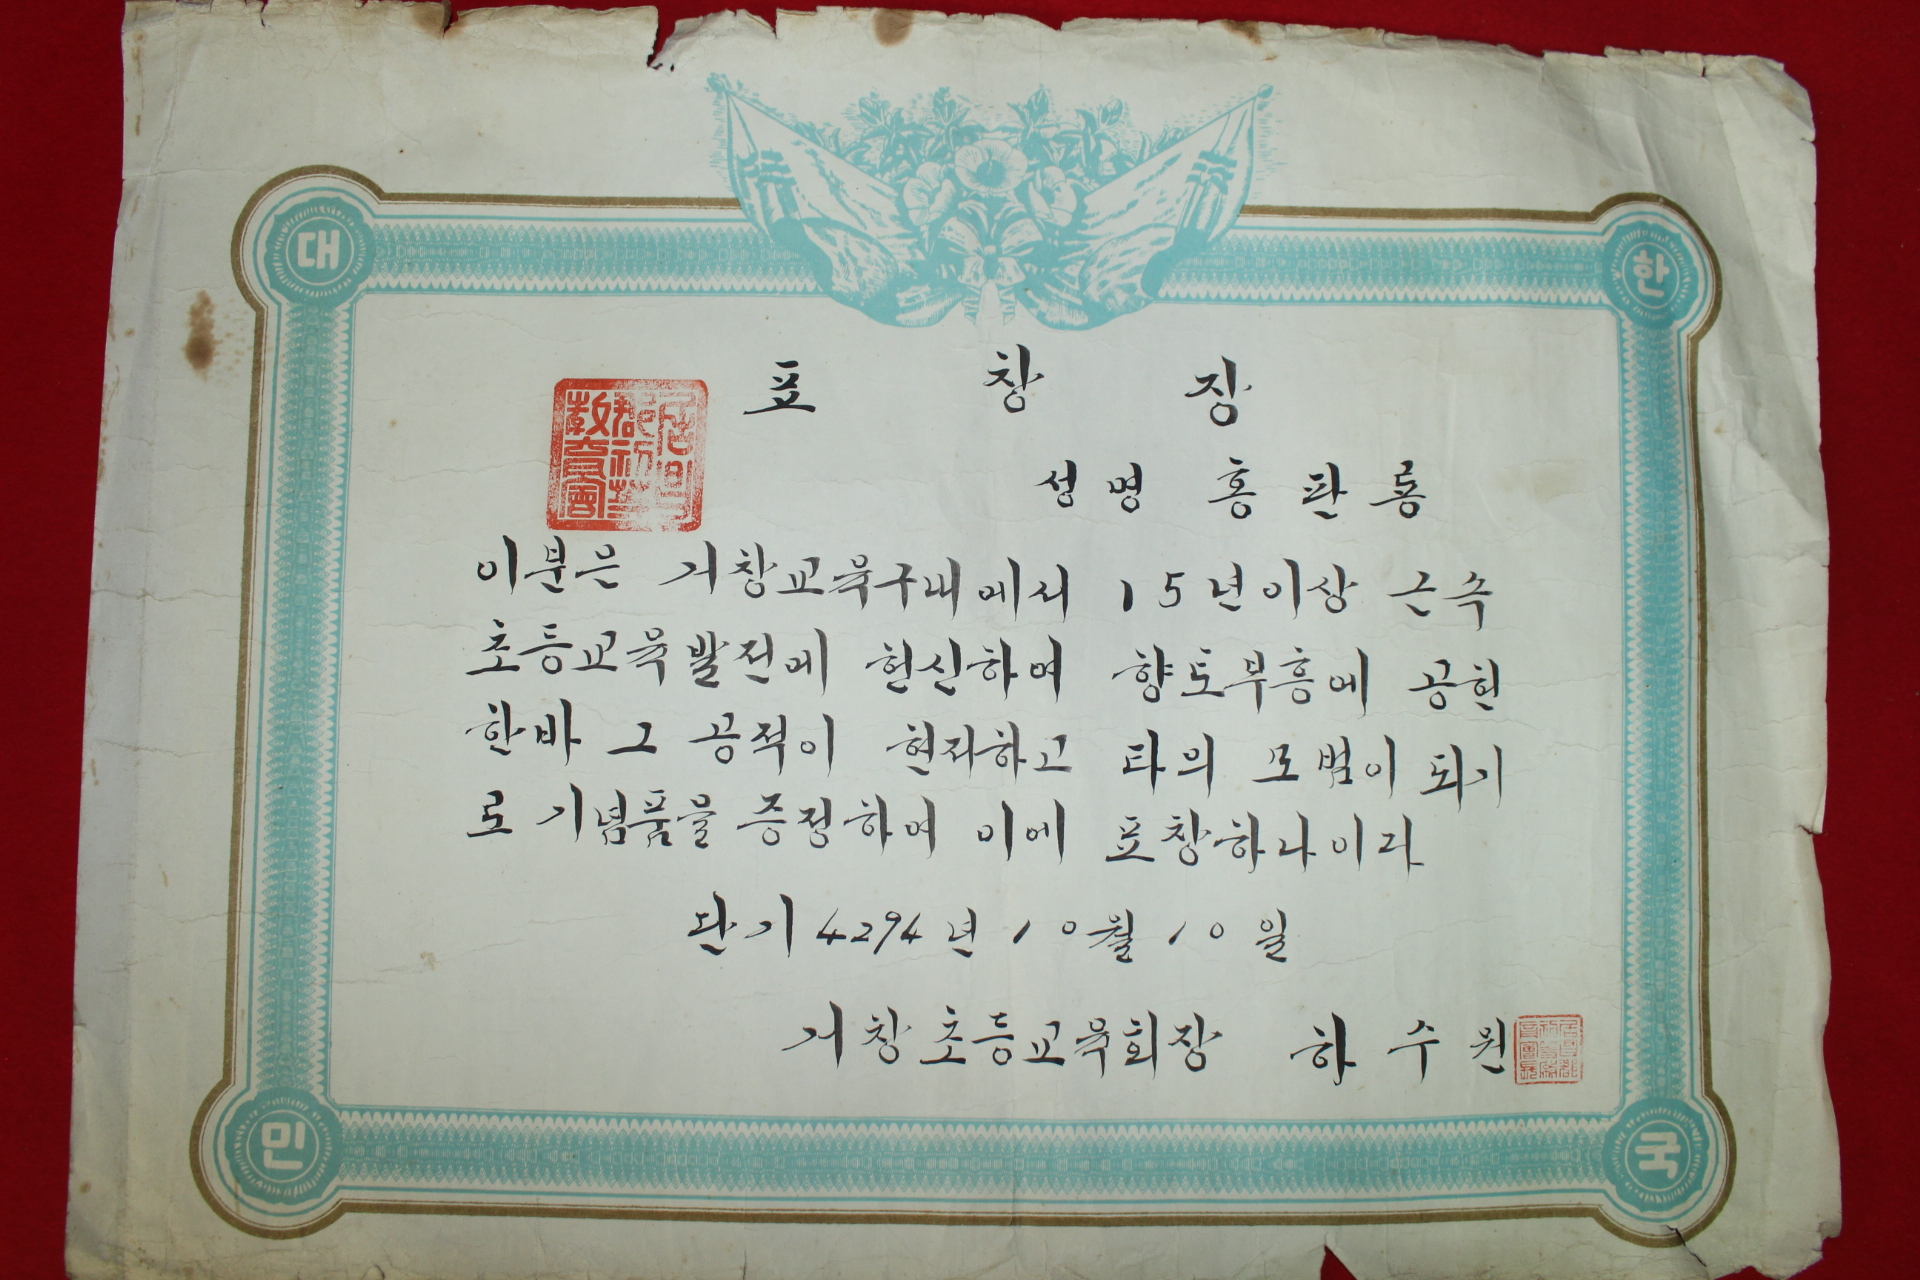 대 한
표 창 장
성명 홍판룡
이분은 거창교육구내에서 15년이상 근속
초등교육발전에 헌신하여 향토부흥에 공헌
한바 그 공적이 현저하고 타의 모범이 되기
로 기념품을 증정하여 이에 표창하나이라
단기 4294년 10월 10일
거창초등교육회장 하수원
민 국